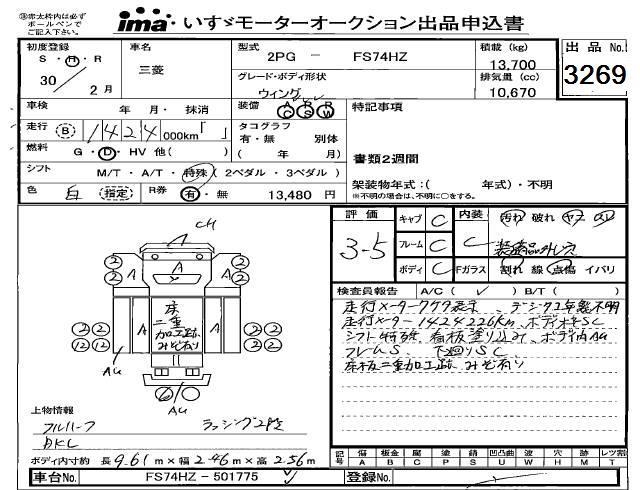 ※赤太枠内は必ず
ボールペンで
ご記入下さい。
ima いすゞモーターオークション出品申込書
初度登録
S・H・R
30 2月
車名
三菱
型式
2PG － FS74HZ
グレード・ボディ形状
ウィング
積載 (kg)
13,700
排気量 (cc)
10,670
出品No.
3269
車検 年 月・抹消
装備 A R R
C S W
特記事項
走行 B 1424 000km「 」
タコグラフ
有・無 別体
( 年 月)
燃料 G・D・HV 他( )
書類2週間
シフト M/T・A/T・特殊 (2ペダル・3ペダル)
架装物年式：( 年式)・不明
※不明の場合は、不明に○をする。
色 白 (指定) R券 有・無 13,480 円
評価
3-5
キャブ C
フレーム C
ボディ C
内装 C
Fガラス
汚れ 破れ ヤケ スレ
装備品外し穴
割れ 線 点傷 イバリ
検査員報告 A/C( ✓ ) B/T( )
走行メーター777表示、デジタコ年数不明
走行メーター1424226km、ボディキズSC
シフト特殊、看板塗り込み、ボディ内AU
フレームS、下回りSC
床板二重加工跡、みぞ有り
CH
A
A
A
A
A
床
二重
加工跡
みぞ有り
2 2
2 2
2 2
12 12
2
2
2 2
12 12
AU
AU
上物情報
フルハーフ
DKL
ラッシング2段
ボディ内寸約 長9.61m×幅2.46m×高2.56m
記号
傷 板金 腐 塗 錆 凹凸曲 補 穴 跡 レンズ割
A B C P S U W H M T
車台No. FS74HZ － 501775
登録No.